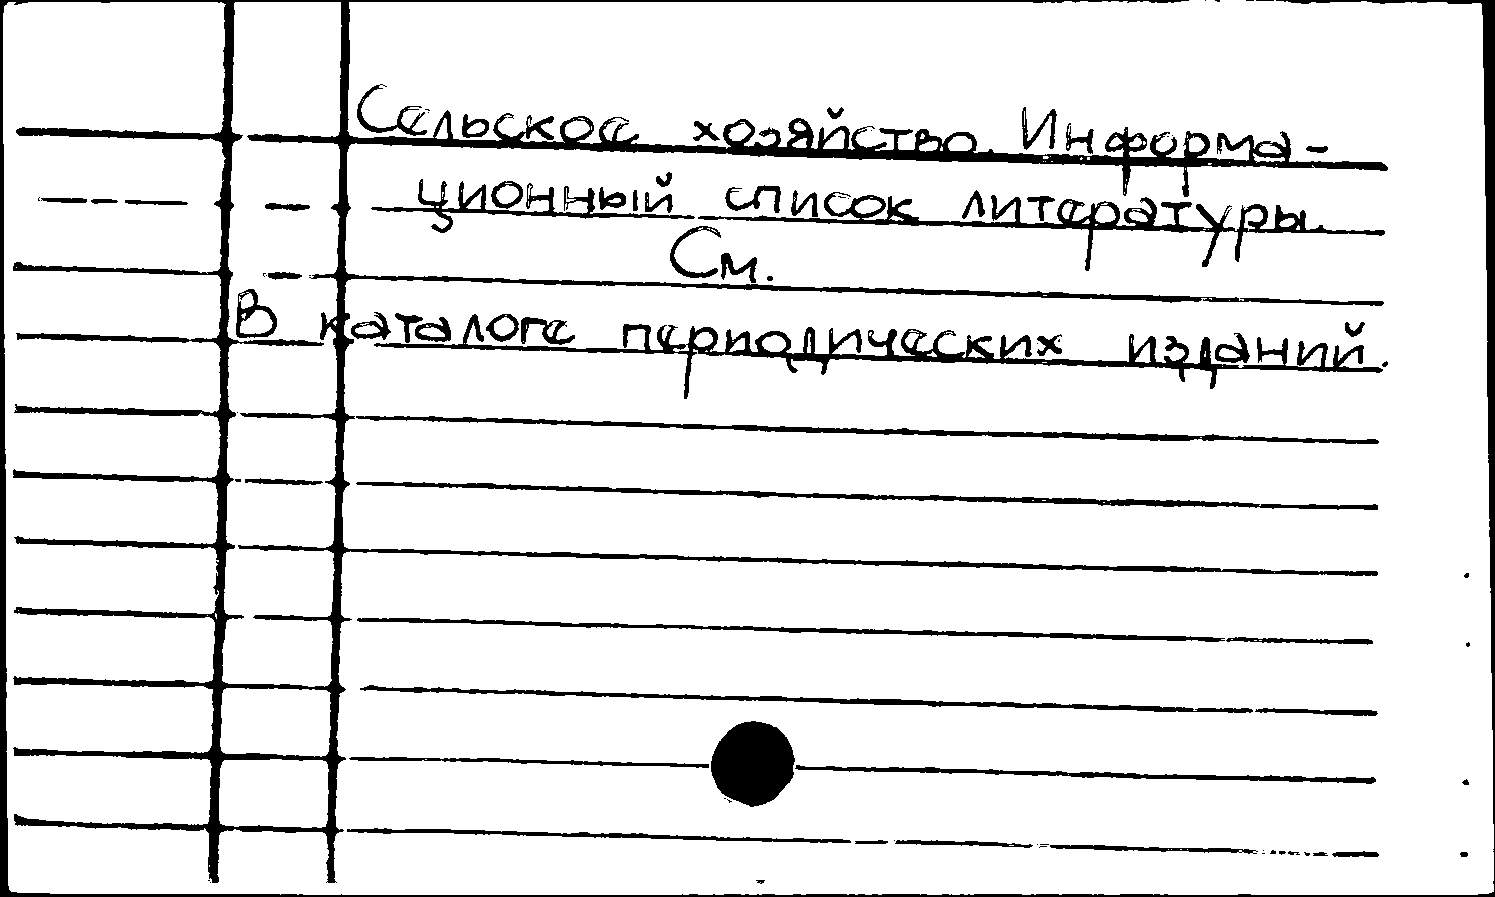 Сельское хозяйство. Информа-
ционный список литературы.
См.
В каталоге периодических изданий.